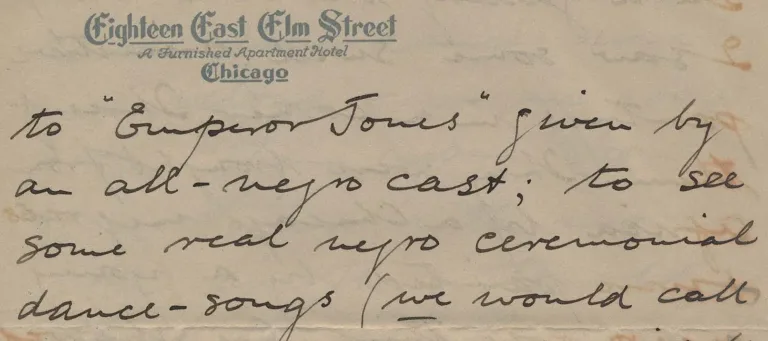 Eighteen East Elm Street
A Furnished Apartment Hotel
Chicago
to "Emperor Jones" given by
an all-negro cast; to see
some real negro ceremonial
dance-songs (we would call